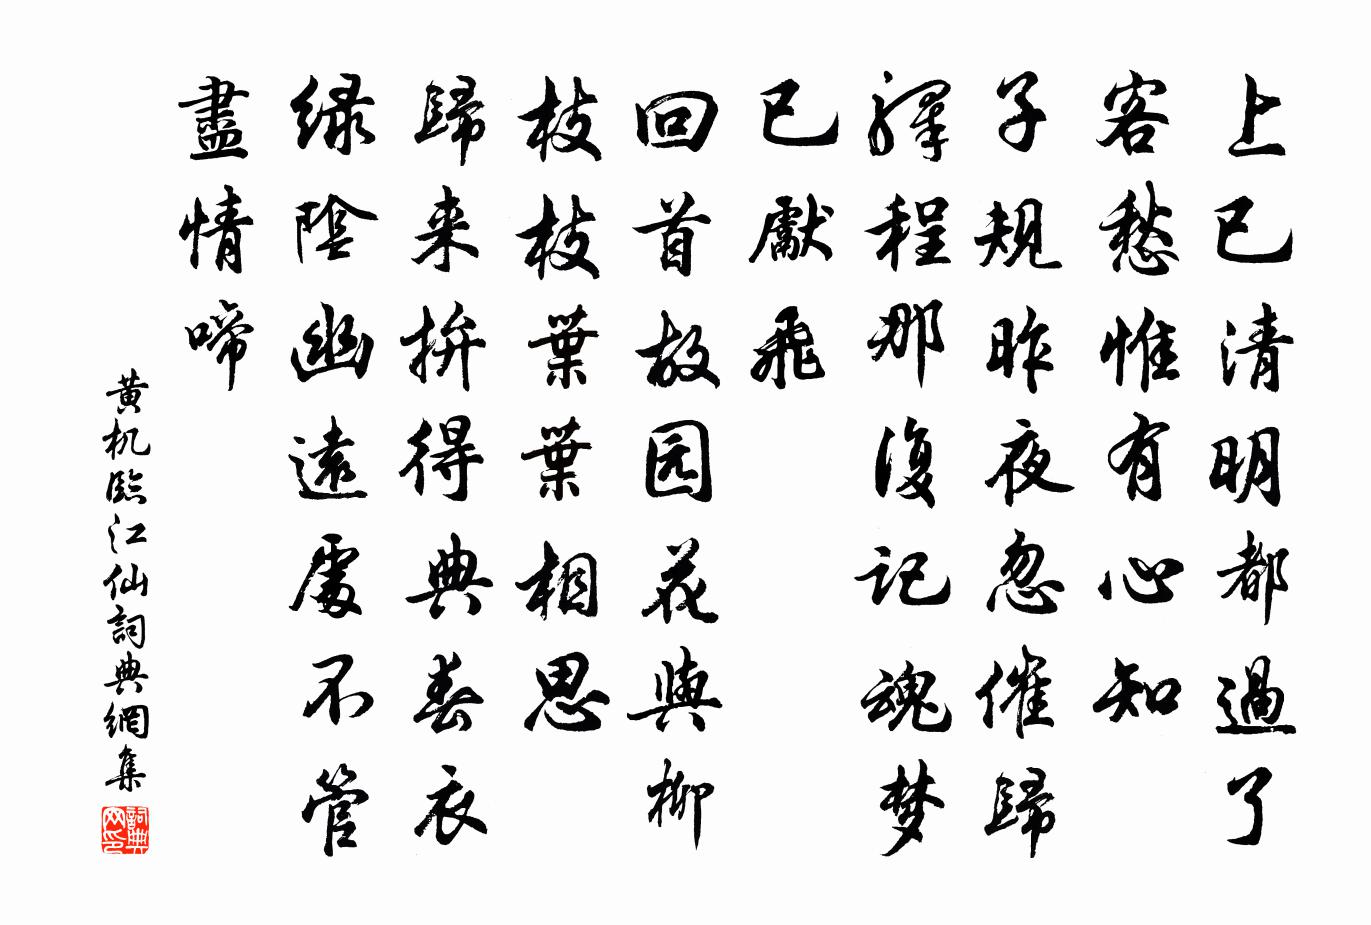 上巳清明都過了
客愁惟有心知
子規昨夜忽催歸
驛程那復記魂梦
已獻飛
回首故园花與柳
枝枝葉葉相思
歸来拚得典春衣
绿陰幽遠處不管
盡情啼
黄机臨江仙詞典網集
詞典网印